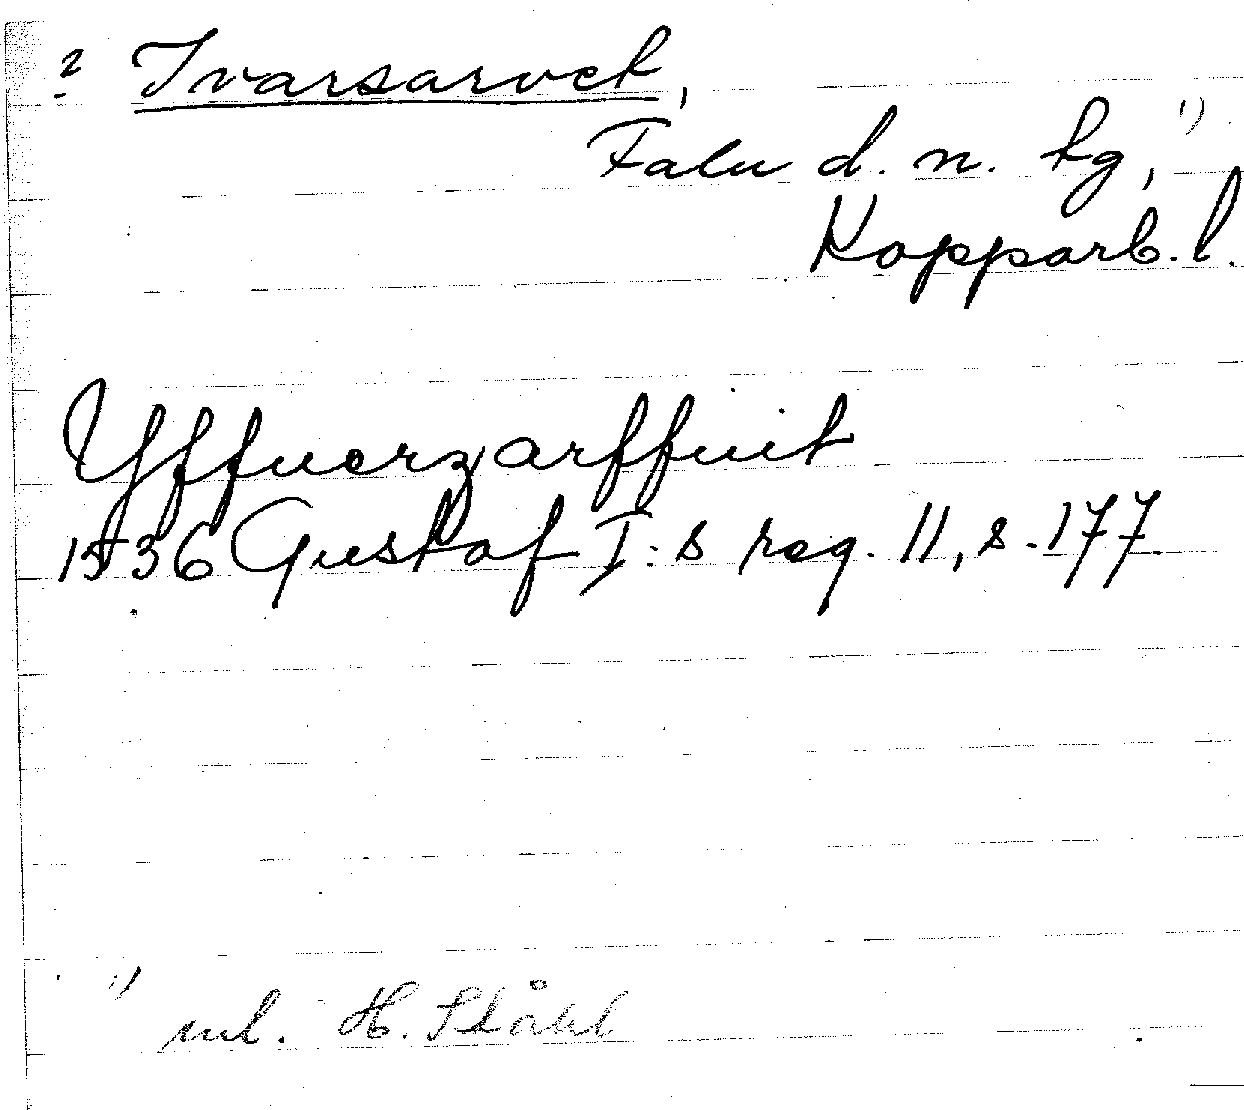 ? Ivarsarvet,
Falu d. n. tg, 1)
Kopparb. l.
Yffuerzarffuit
1536 Gustaf I:s reg. 11, s. 177
1) enl. H. Ståhl